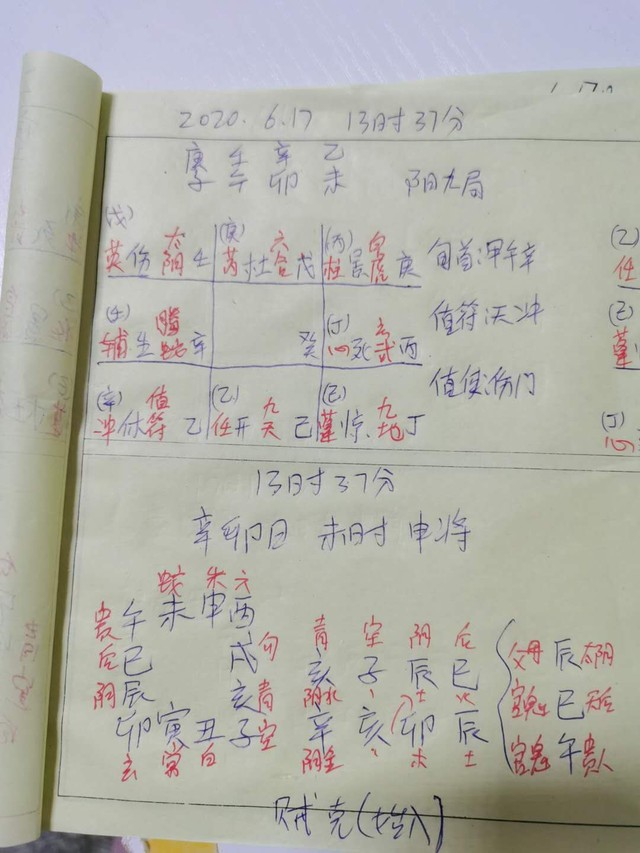 2020. 6.17 13时37分
庚 壬 辛 乙
子 午 卯 未 阴九局
(戊) (庚) (丙)
英 伤 太阴 壬 芮 杜 六合 戊 柱 景 白虎 庚 旬首:甲午辛
(壬) (丁)
辅 生 螣蛇 辛 癸 心 死 玄武 丙 值符:天冲
值使:伤门
(辛) (乙) (己)
冲 休 值符 乙 任 开 九天 己 蓬 惊 九地 丁
(乙)
任
(己)
蓬
(丁)
心
13时37分
辛卯日 未时 申将
蛇 朱 六
贵 午 未 申 酉
后 巳 戌 勾
阴 辰 亥 青
卯 寅 丑 子 空
玄 常 白
青 空 阴 后
亥 子 辰 巳
阴水 、 土 火
辛 亥 卯 辰
阴金 、 木 土
父母 辰 太阴
官鬼 巳 天后
官鬼 午 贵人
贼克